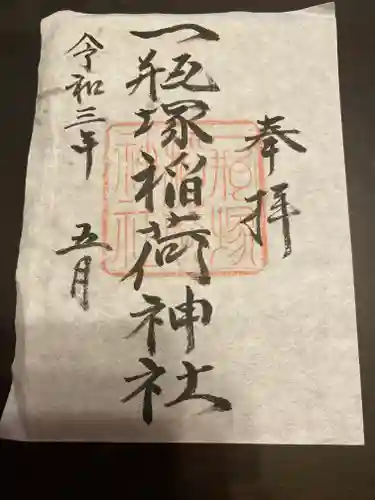 奉拝
一瓶塚稲荷神社
令和三年 五月